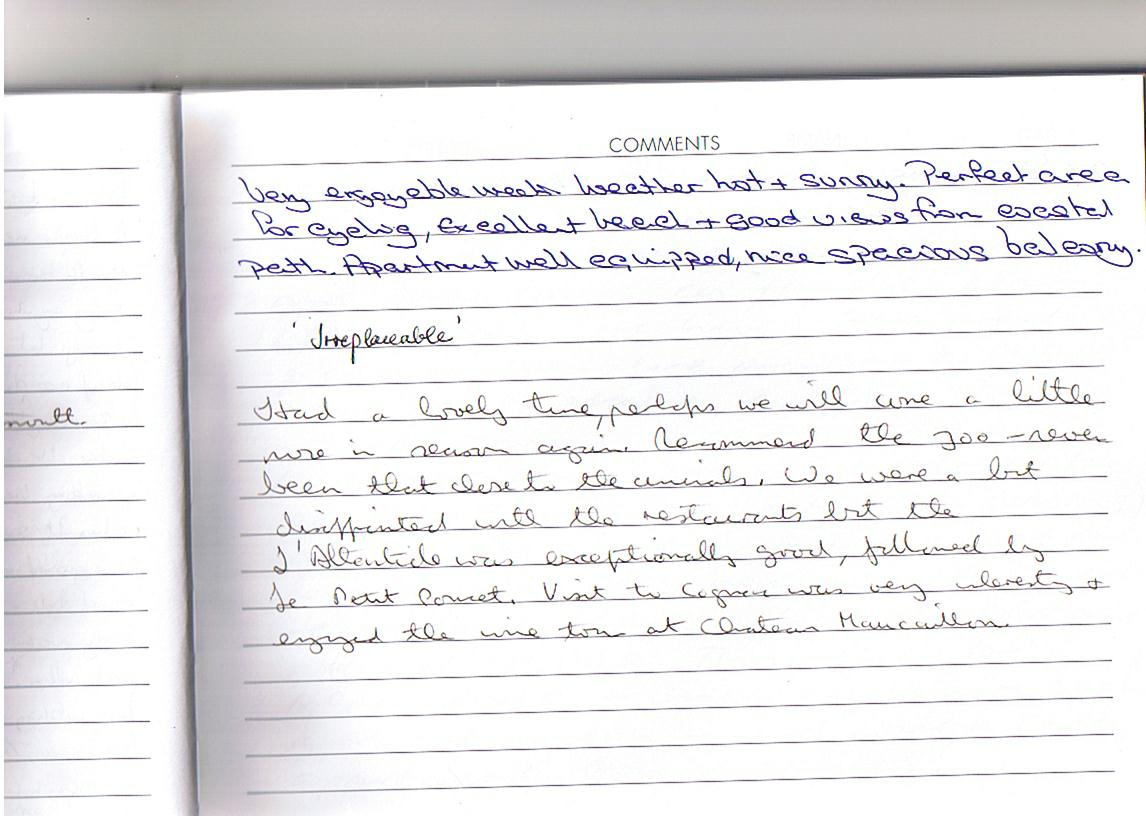 COMMENTS
Very enjoyable week. Weather hot + sunny. Perfect area
for cycling, excellent beach + good views from coastal
path. Apartment well equipped, nice spacious balcony.
'Irreplaceable'
Had a lovely time, perhaps we will come a little
more in season again. Recommend the zoo - never
been that close to the animals. We were a bit
disappointed with the restaurants but the
L'Atlantide was exceptionally good, followed by
Le Petit Poucet. Visit to Cognac was very interesting +
enjoyed the wine tour at Chateau Maucaillou.